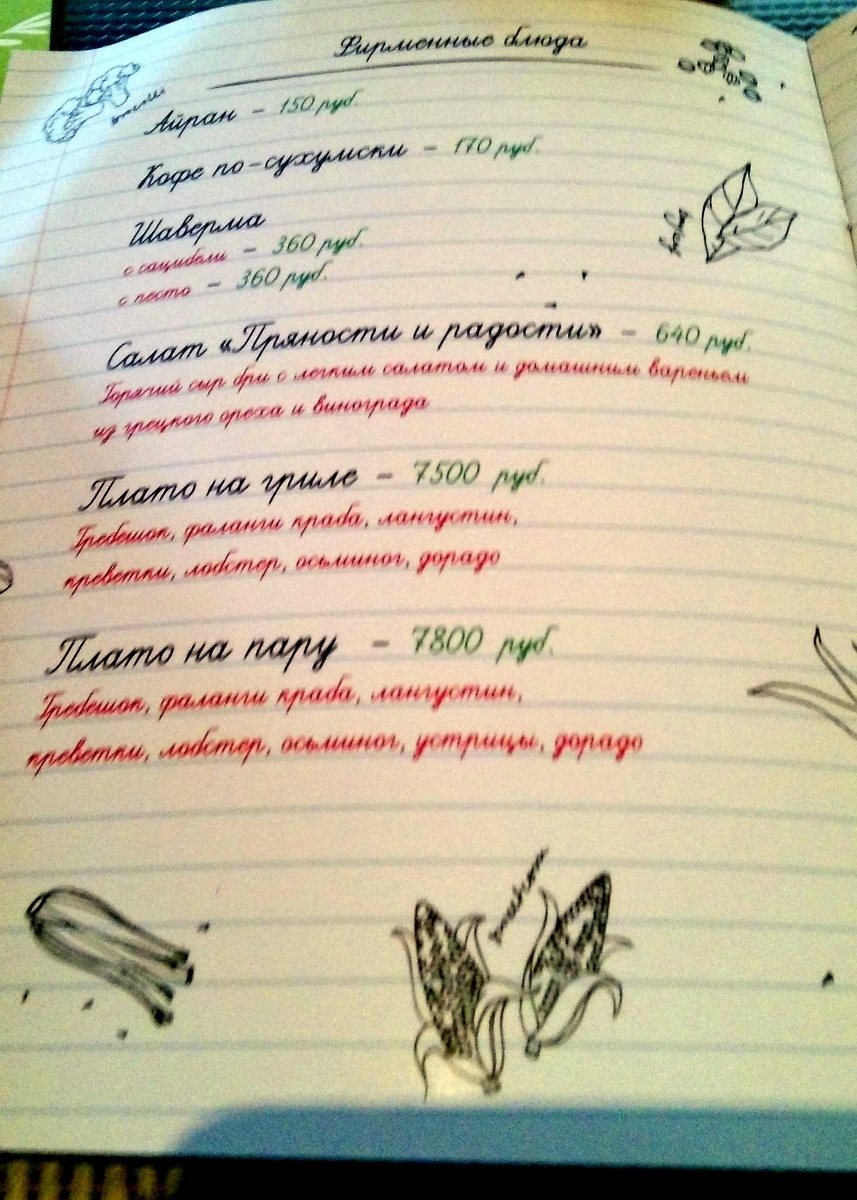 Фирменные блюда
Айран – 150 руб.
Кофе по-сухумски – 170 руб.
Шаверма
с сацибели – 360 руб.
с песто – 360 руб.
Салат «Пряности и радости» – 640 руб.
Горячий сыр бри с легким салатом и домашним вареньем
из грецкого ореха и винограда
Плато на гриле – 7500 руб.
Гребешок, фаланги краба, лангустин,
креветки, лобстер, осьминог, дорадо
Плато на пару – 7800 руб.
Гребешок, фаланги краба, лангустин,
креветки, лобстер, осьминог, устрицы, дорадо